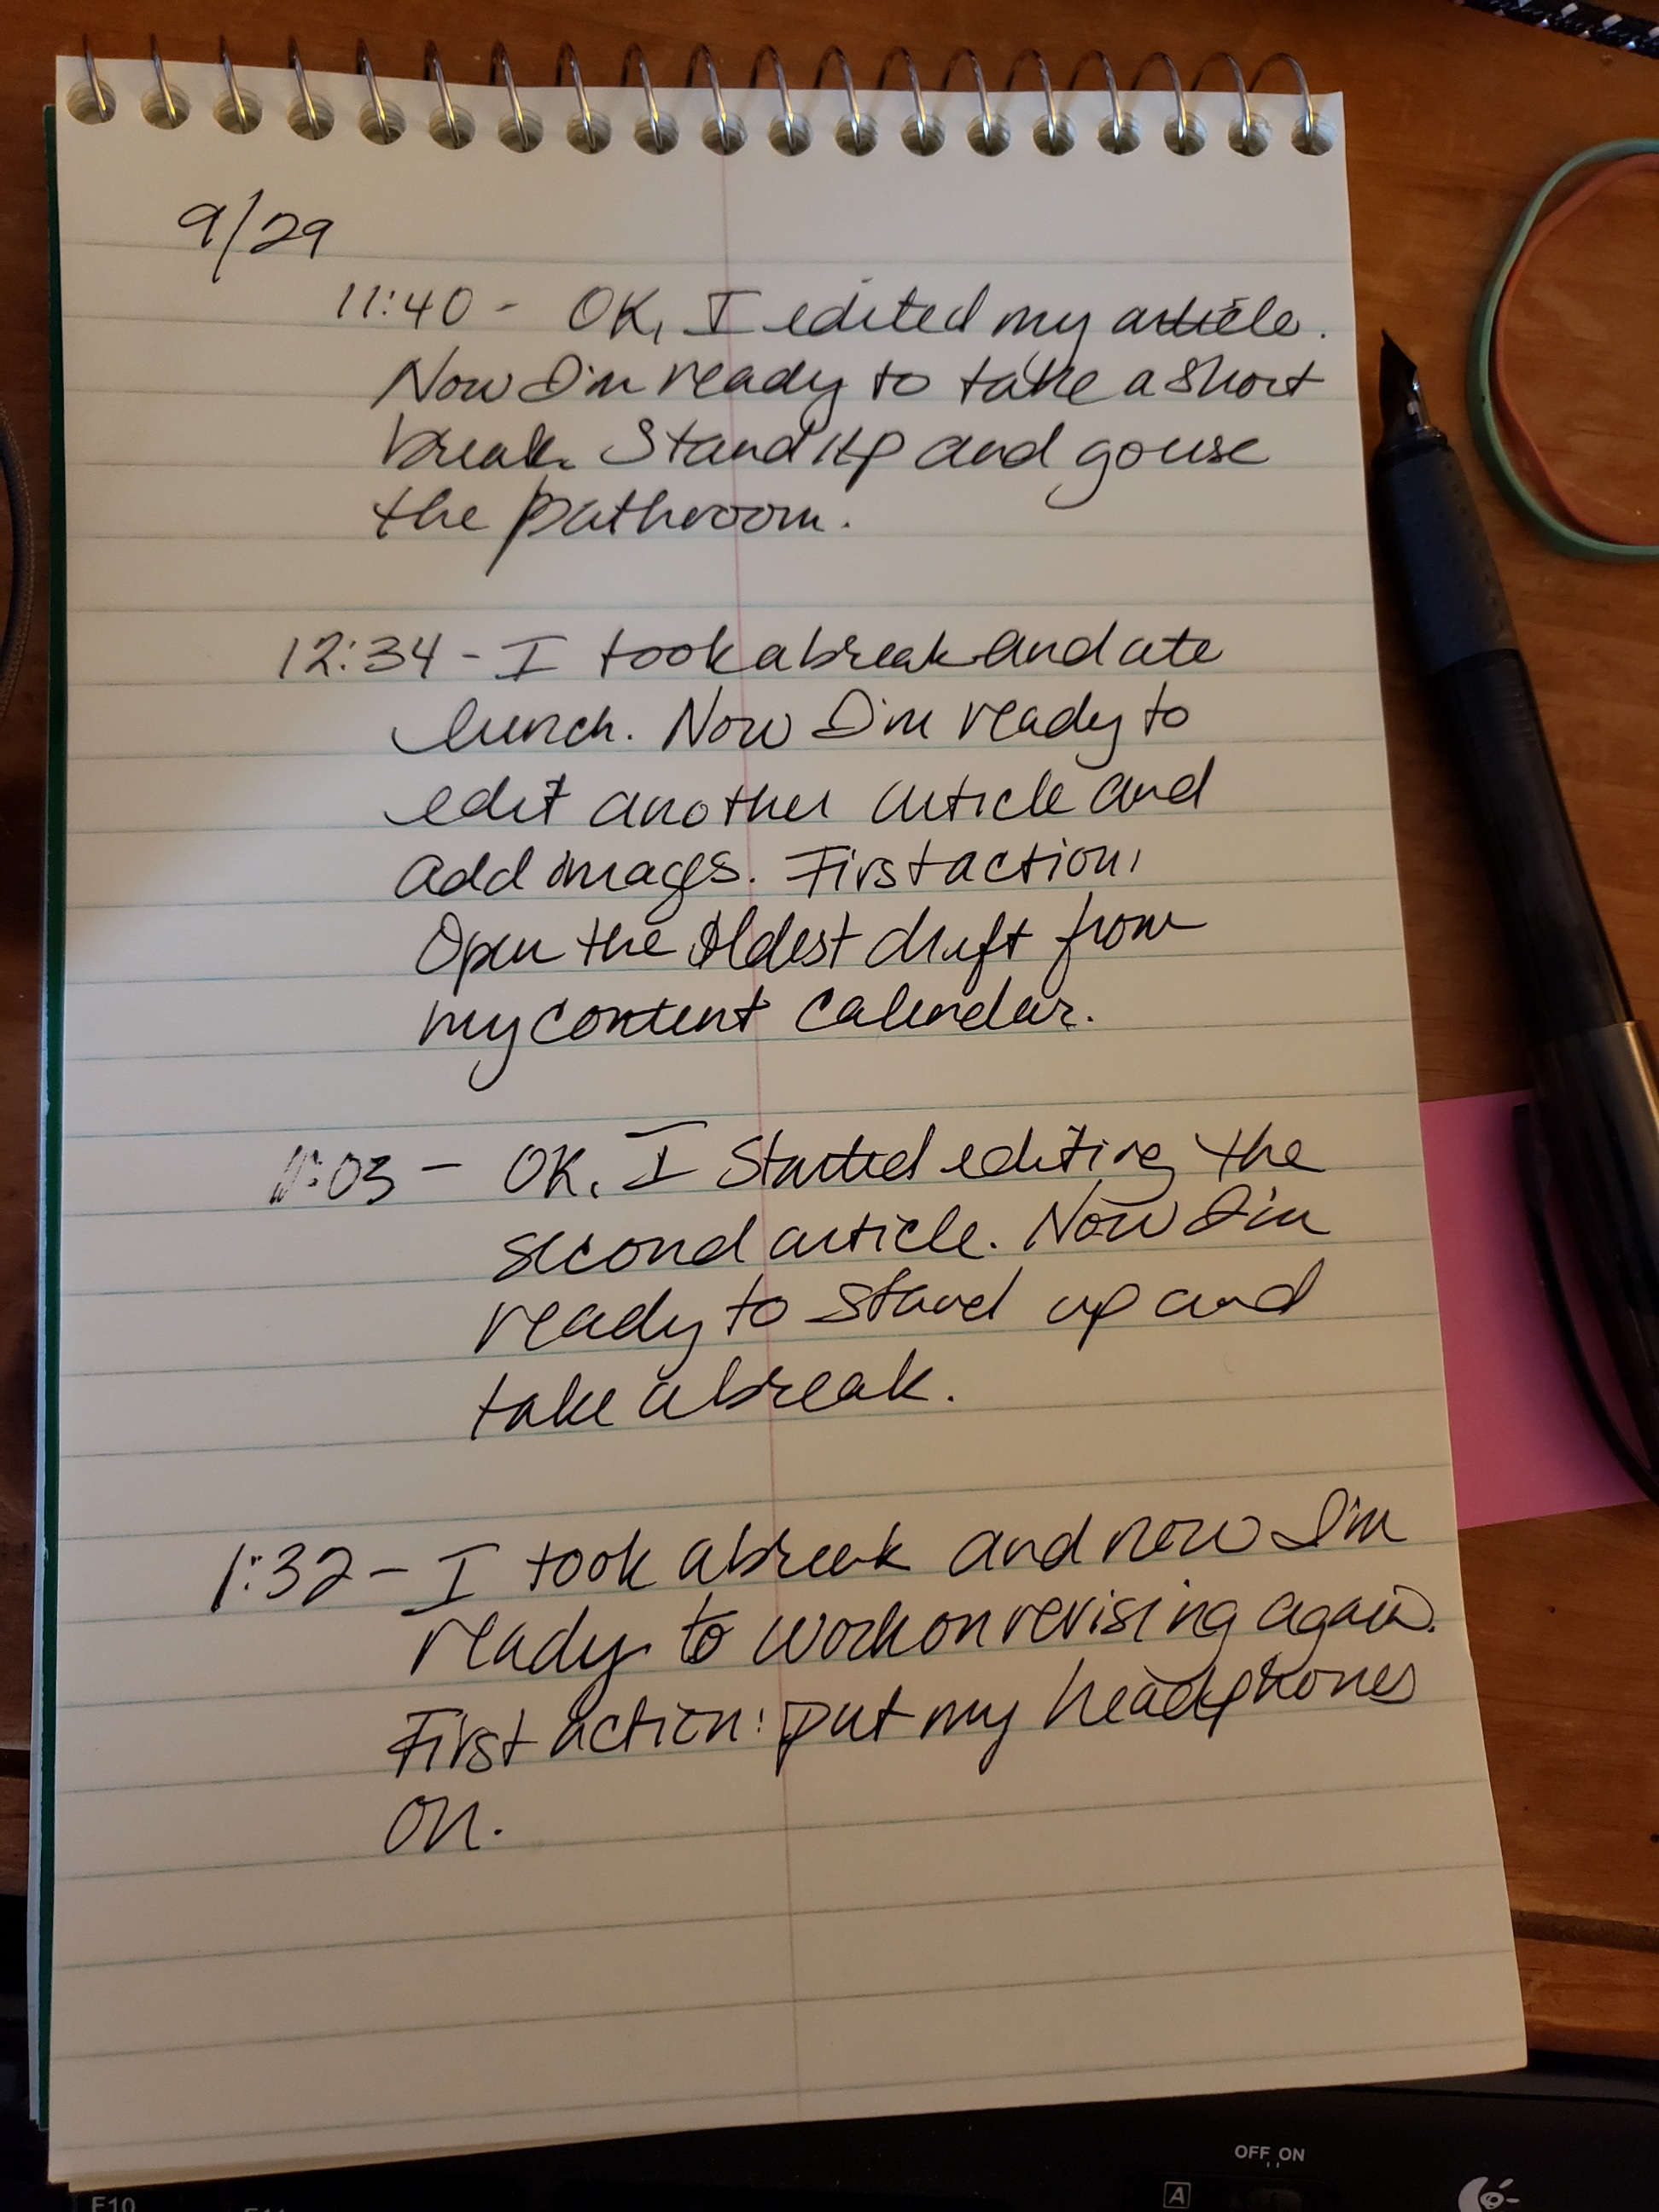 9/29
11:40 - OK, I edited my article.
Now I'm ready to take a short
break. Stand up and go use
the bathroom.
12:34 - I took a break and ate
lunch. Now I'm ready to
edit another article and
add images. First action,
Open the oldest draft from
my content calendar.
1:03 - OK, I started editing the
second article. Now I'm
ready to stand up and
take a break.
1:32 - I took a break and now I'm
ready to work on revising again.
First action: put my headphones
on.
OFF ON
A
F10